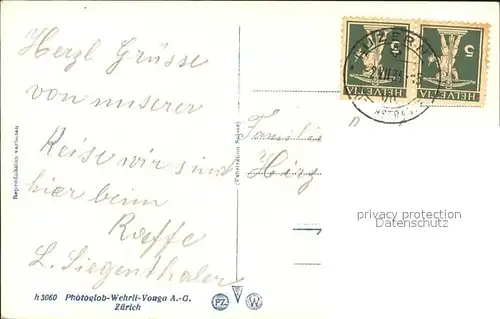 Herzl Grüsse
von unserer
Reise wir sind
hier beim
Kaffe
L. Siegenthaler
Familie
Hirz
LUZERN
HELVETIA
5
HELVETIA
5
Reproduktion verboten
privacy protection
Datenschutz
h 3060 Photoglob-Wehrli-Vouga A.-G.
Zürich
PZ
W